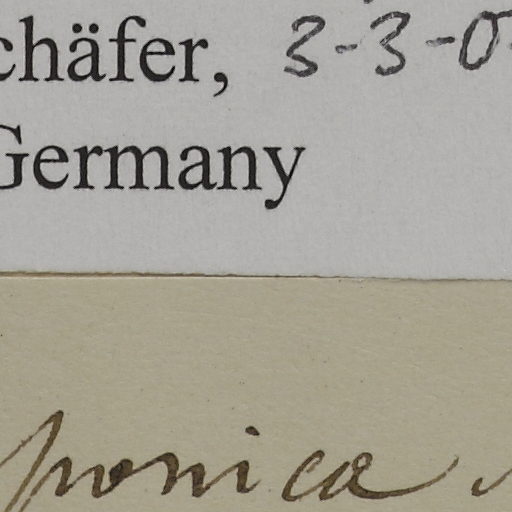 chäfer, 3-3-0
Germany
ponica